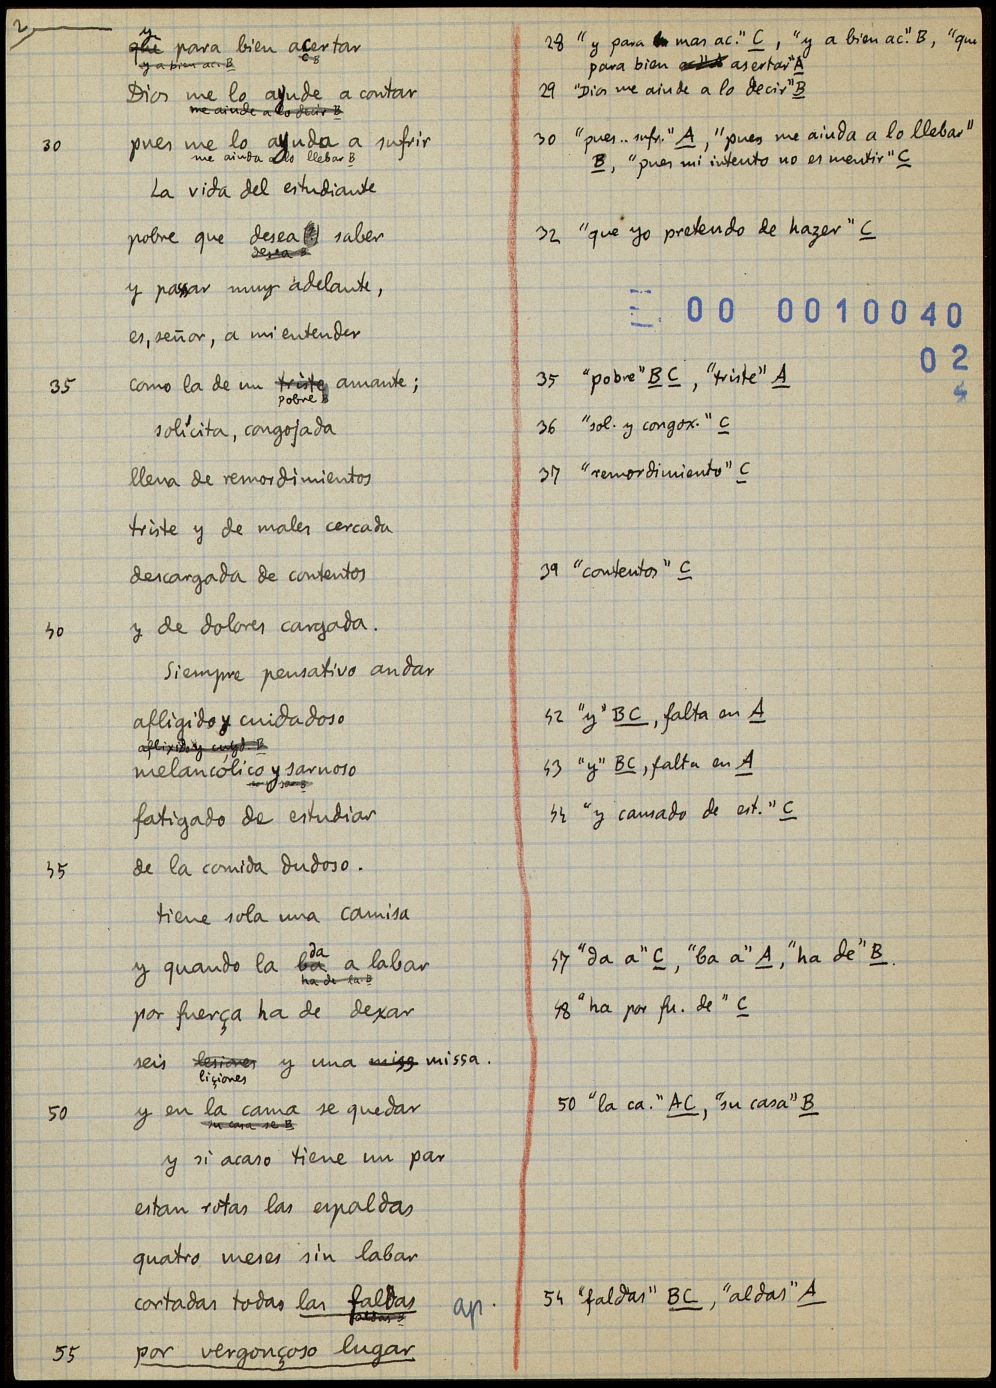 2
y
que para bien acertar
y a bien ac. B c B
Dios me lo ayude a contar
me aiude a lo decir B
30 pues me lo ayuda a sufrir
me aiuda a lo llebar B
La vida del estudiante
pobre que desea saber
desea B
y passar muy adelante,
es, señor, a mi entender
35 como la de un triste amante;
pobre B
solícita, congojada
llena de remordimientos
triste y de males cercada
descargada de contentos
40 y de dolores cargada.
Siempre pensativo andar
afligido y cuidadoso
aflixido y cuyd. B
melancólico y sarnoso
fatigado de estudiar
45 de la comida dudoso.
tiene sola una camisa
da
y quando la ba a labar
ha de la B
por fuerça ha de dexar
seis lesiones y una miss missa.
liçiones
50 y en la cama se quedar
su casa se B
y si acaso tiene un par
estan rotas las espaldas
quatro meses sin labar
cortadas todas las faldas ap.
faldas B
55 por vergonçoso lugar
28 "y para mas ac." C, "y a bien ac." B, "que
para bien asertar" A
29 "Dios me aiude a lo decir" B
30 "pues .. sufr." A, "pues me aiuda a lo llebar"
B, "pues mi intento no es mentir" C
32 "que yo pretendo de hazer" C
00 0010040
02
35 "pobre" B C, "triste" A
36 "sol. y congox." C
37 "remordimiento" C
39 "contentos" C
42 "y" BC, falta en A
43 "y" BC, falta en A
44 "y cansado de est." C
47 "da a" C, "ba a" A, "ha de" B.
48 "ha por fu. de" C
50 "la ca." AC, "su casa" B
54 "faldas" BC, "aldas" A